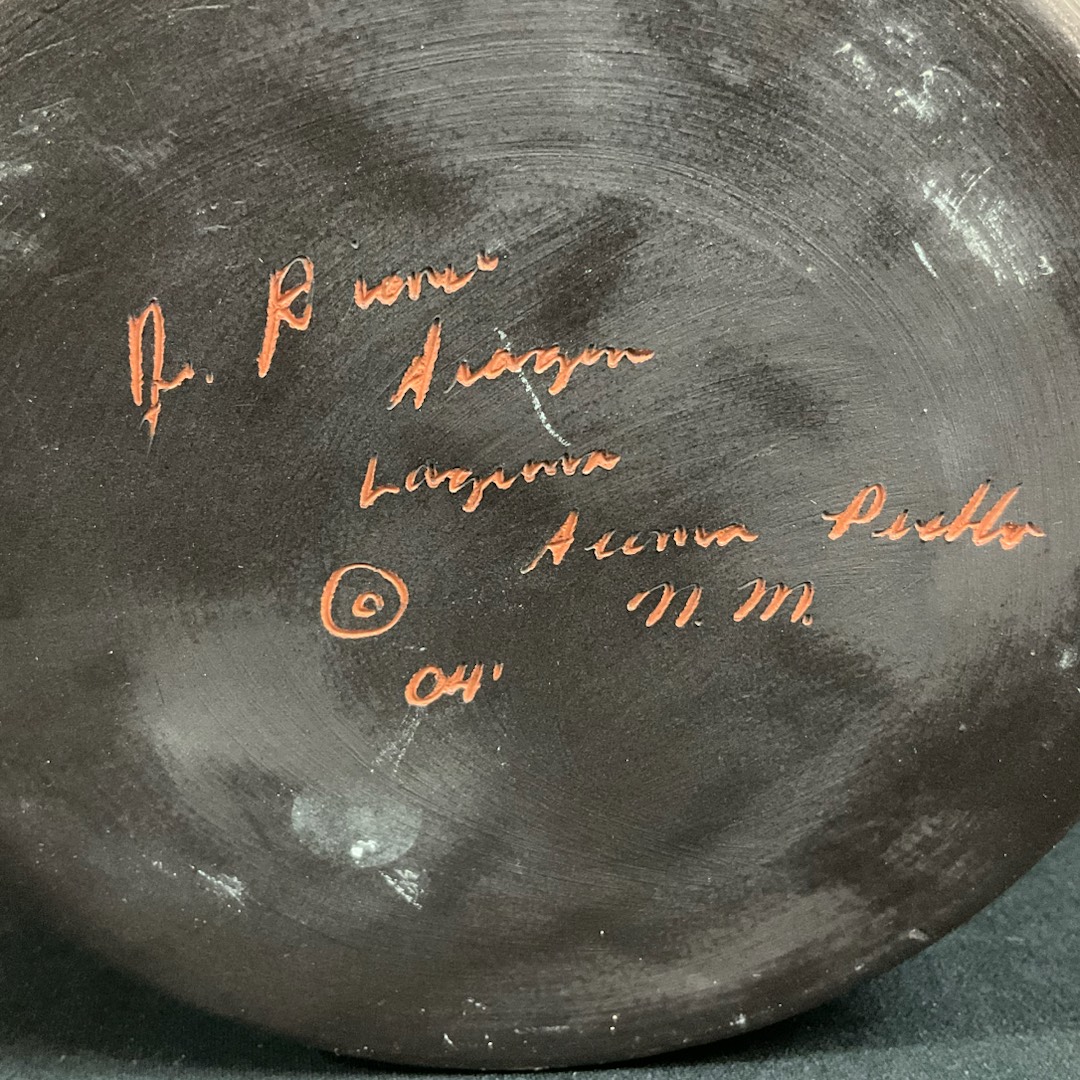 Aragon
Laguna
Acoma Pueblo
N. M.
©
04'